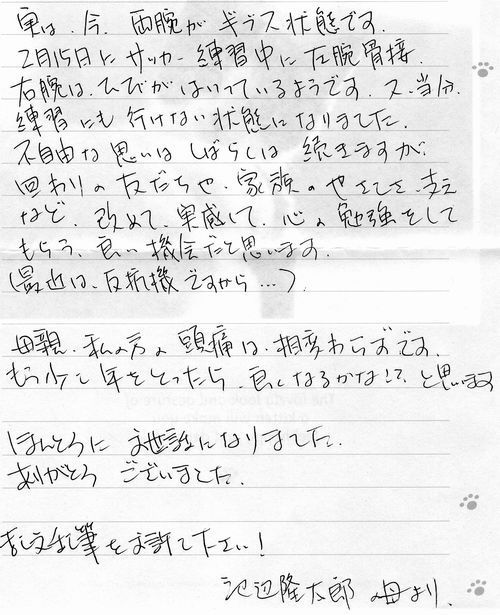 実は、今、両腕がギプス状態です。
2月15日にサッカー練習中に左腕骨接、
右腕は、ひびがはいっているようです。又、当分、
練習にも行けない状態になりました。
不自由な思いはしばらくは続きますが、
回わりの友だちや、家族のやさしさ、支え
など、改めて、実感して、心の勉強をして
もらう、良い機会だと思います。
(最近は、反抗機ですから…)
母親、私の方の頭痛は、相変わらずです。
もう少し年をとったら、良くなるかな!?と思います
ほんとうにお世話になりました。
ありがとうございました。
乱文乱筆をお許し下さい!
池辺隆太郎の母より、